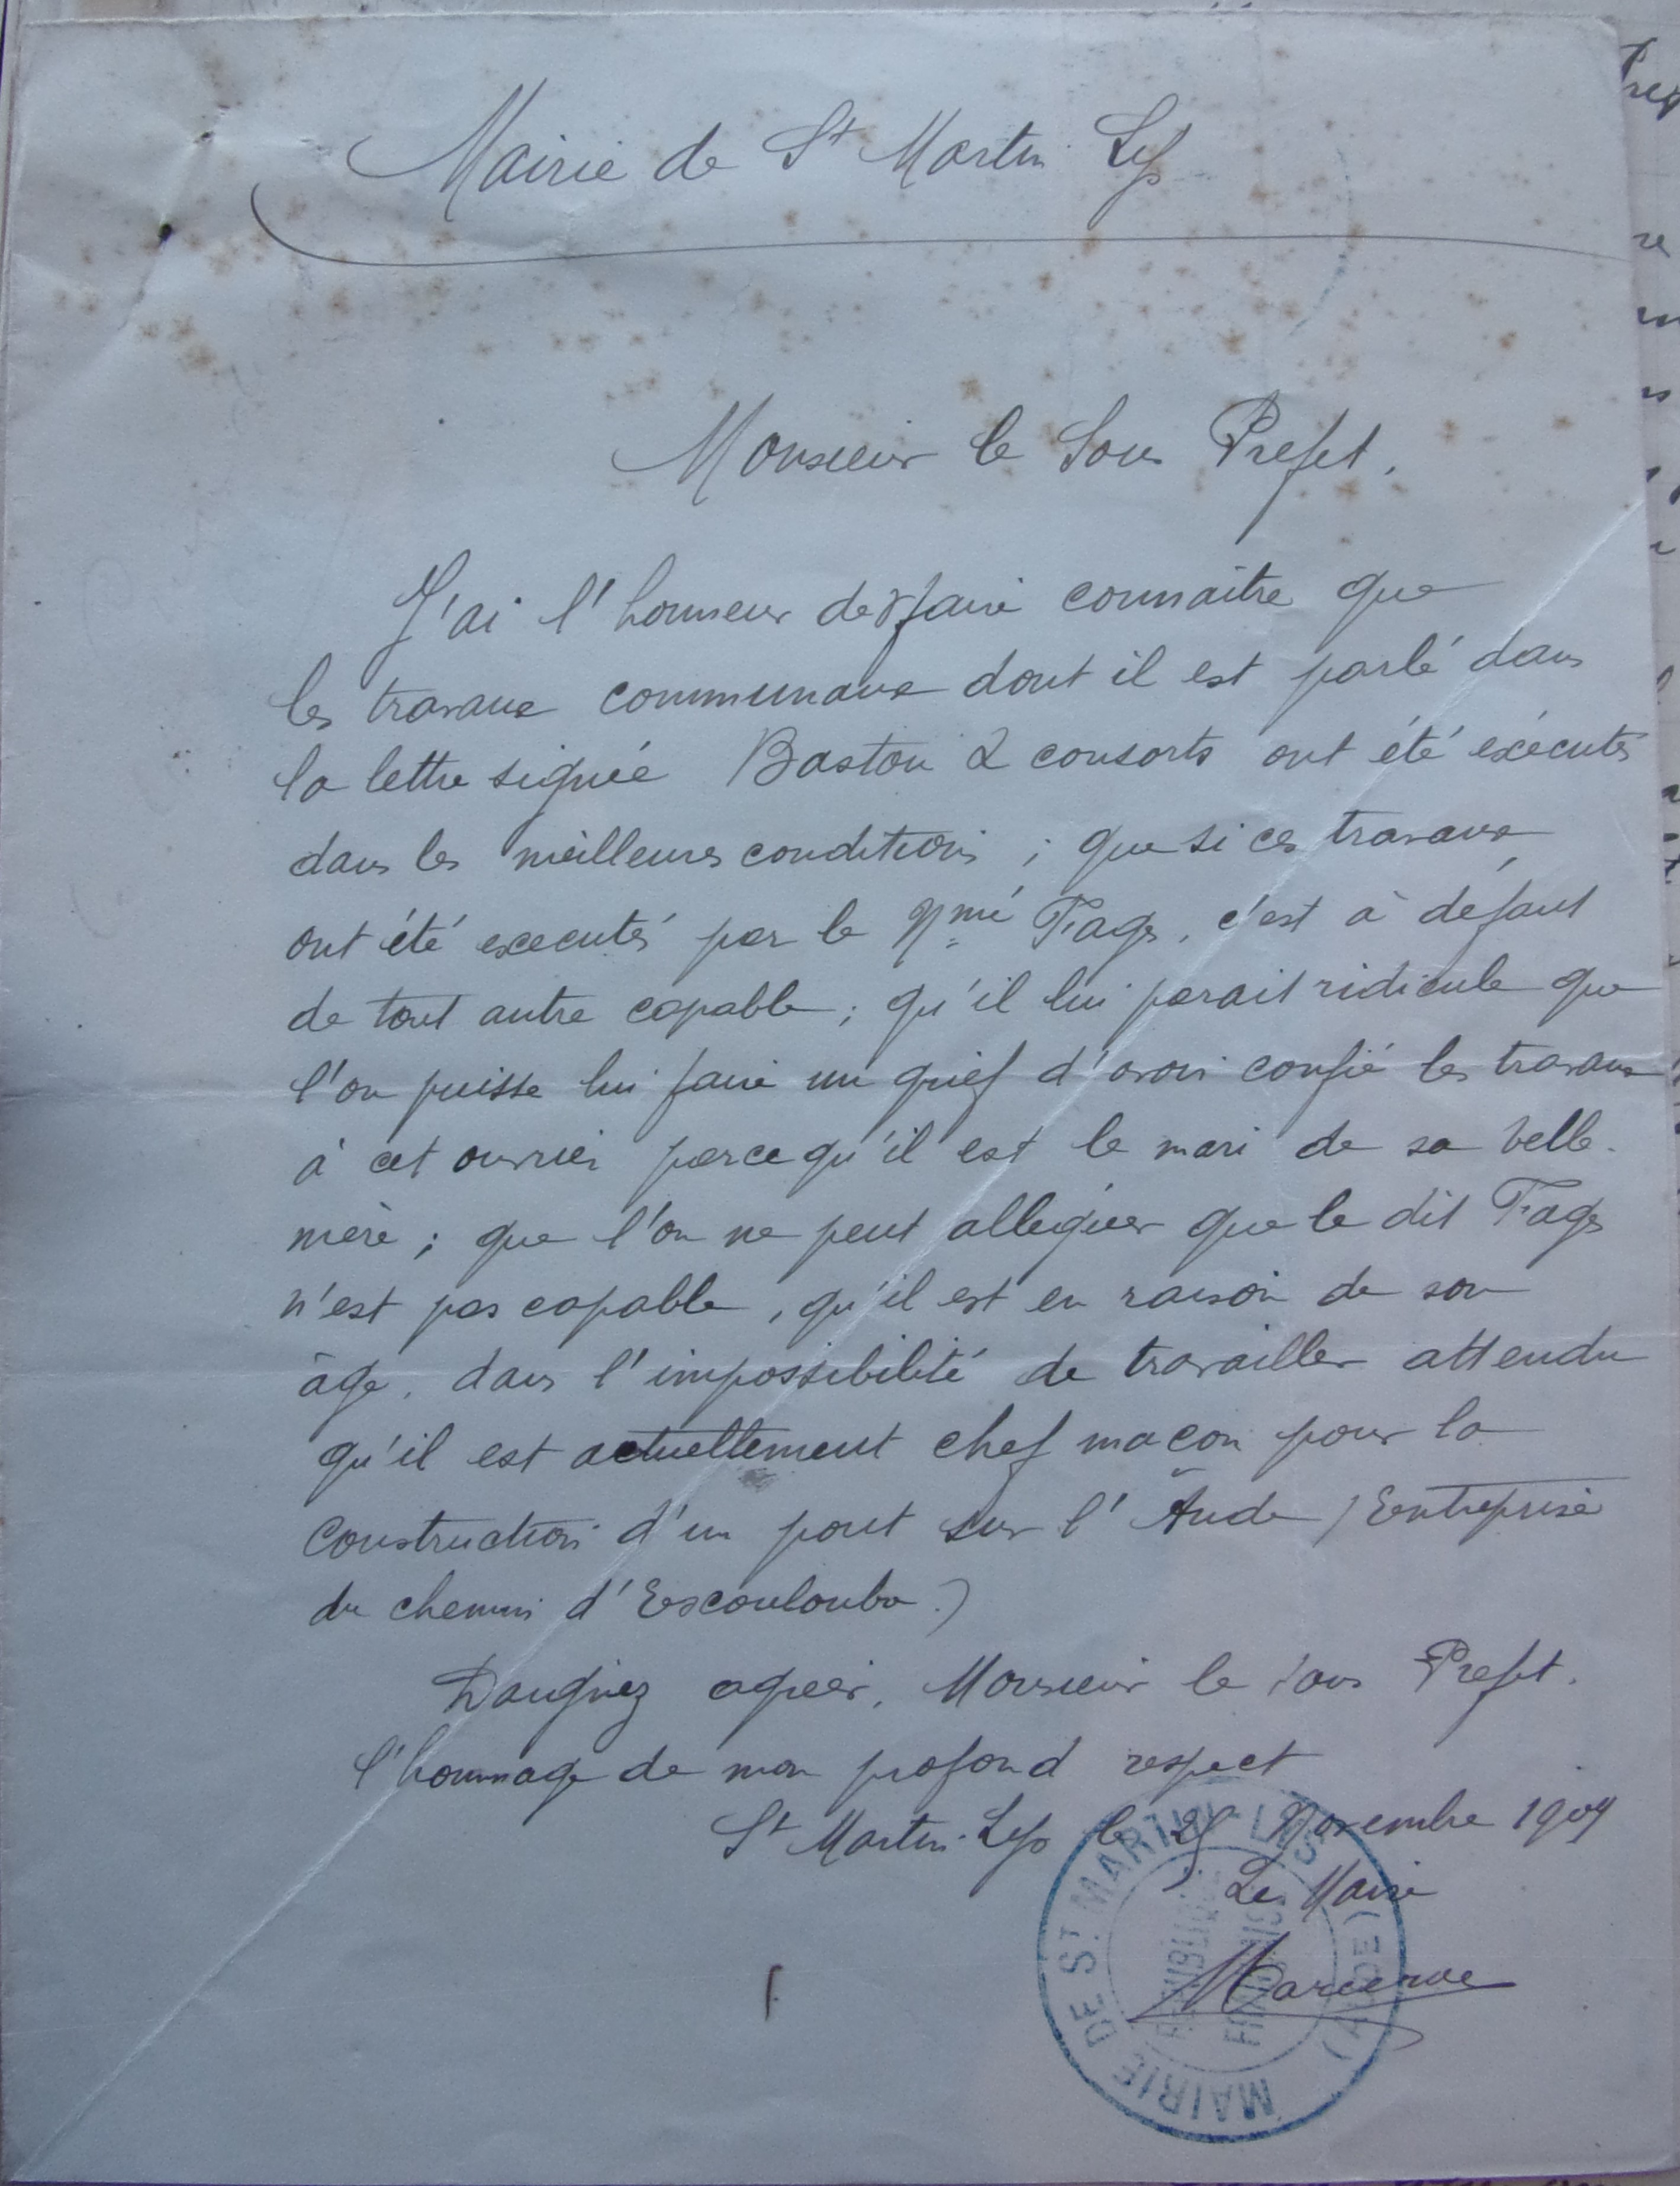 Mairie de St Martin Lys
Monsieur le Sous Prefet.
J'ai l'honneur de faire connaitre que
les travaux communaux dont il est parlé dans
la lettre signée Baston & consorts ont été exécutés
dans les meilleures conditions ; que si ces travaux
ont été executés par le Nmé Fages, c'est à défaut
de tout autre capable ; qu'il lui parait ridicule que
l'on puisse lui faire un grief d'avoir confié les travaux
à cet ouvrier parcequ'il est le mari de sa belle-
mère ; que l'on ne peut alléguer que le dit Fages
n'est pas capable, qu'il est en raison de son
âge, dans l'impossibilité de travailler attendu
qu'il est actuellement chef maçon pour la
construction d'un pont sur l'Aude (Entreprise
du chemin d'Escouloubre.)
Daignez agréer, Monsieur le Sous Prefet.
l'hommage de mon profond respect
St Martin-Lys le Novembre 1904
Le Maire
MAIRIE DE ST MARTIN-LYS (AUDE)
REPUBLIQUE FRANÇAISE